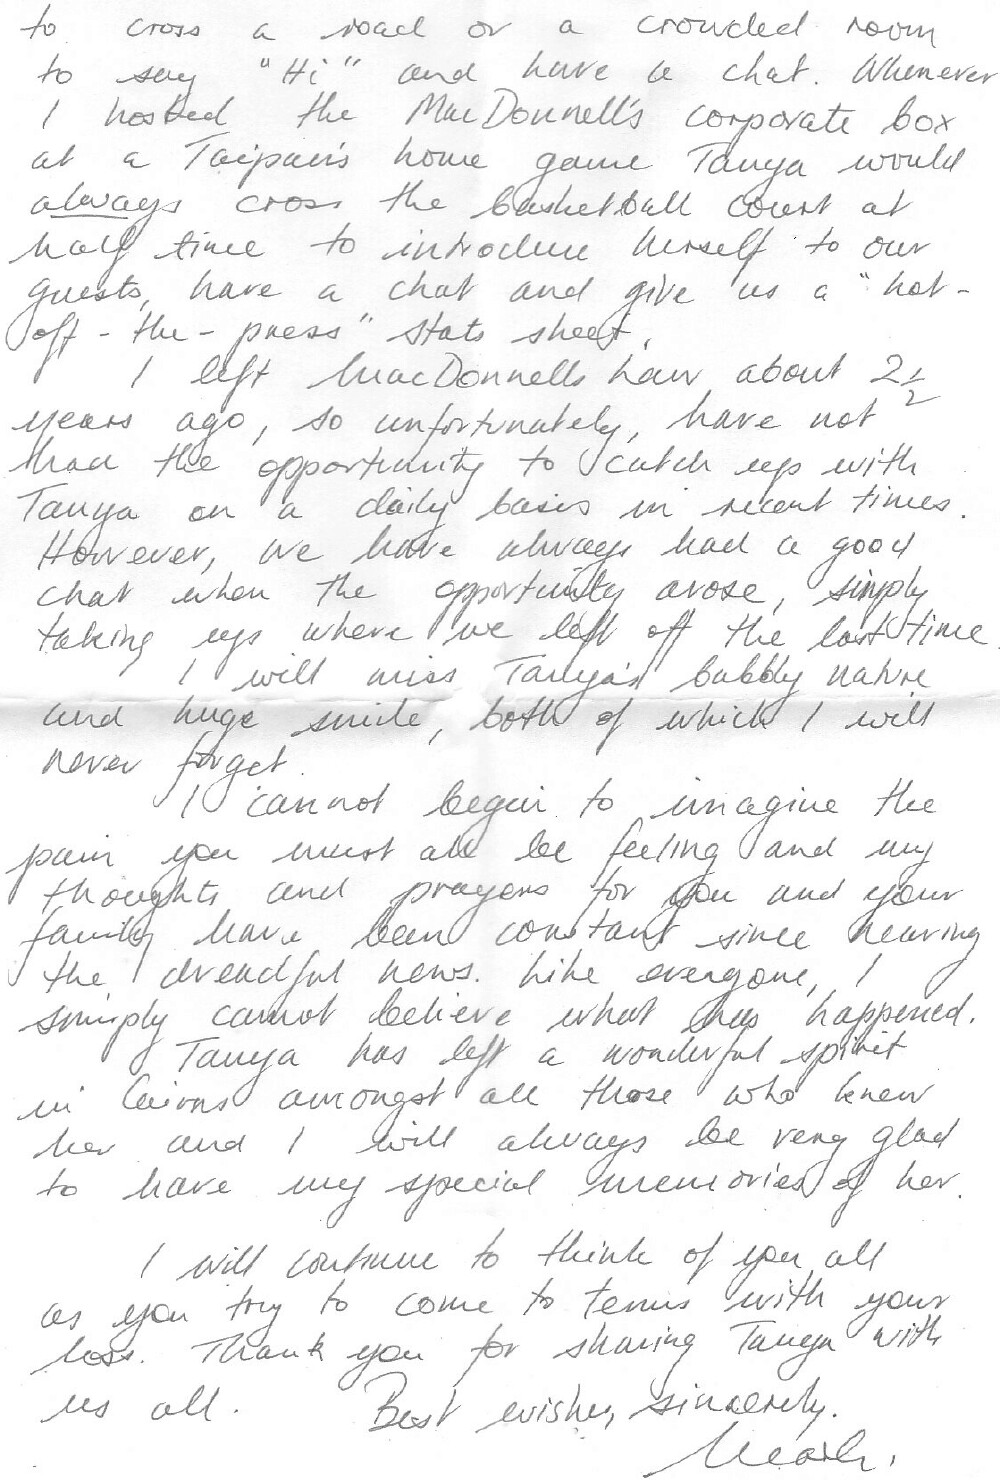 to cross a road or a crowded room
to say "Hi" and have a chat. Whenever
I hosted the MacDonnell's corporate box
at a Taipan's home game Tanya would
always cross the basketball court at
half time to introduce herself to our
guests, have a chat and give us a "hot-
off-the-press" stats sheet.
I left MacDonnells Law about 2½
years ago, so unfortunately, have not
had the opportunity to catch up with
Tanya on a daily basis in recent times.
However, we have always had a good
chat when the opportunity arose, simply
taking up where we left off the last time.
I will miss Tanya's bubbly nature
and huge smile, both of which I will
never forget.
I cannot begin to imagine the
pain you must all be feeling and my
thoughts and prayers for you and your
family have been constant since hearing
the dreadful news. Like everyone, I
simply cannot believe what has happened.
Tanya has left a wonderful spirit
in Cairns amongst all those who knew
her and I will always be very glad
to have my special memories of her.
I will continue to think of you all
as you try to come to terms with your
loss. Thank you for sharing Tanya with
us all. Best wishes, sincerely.